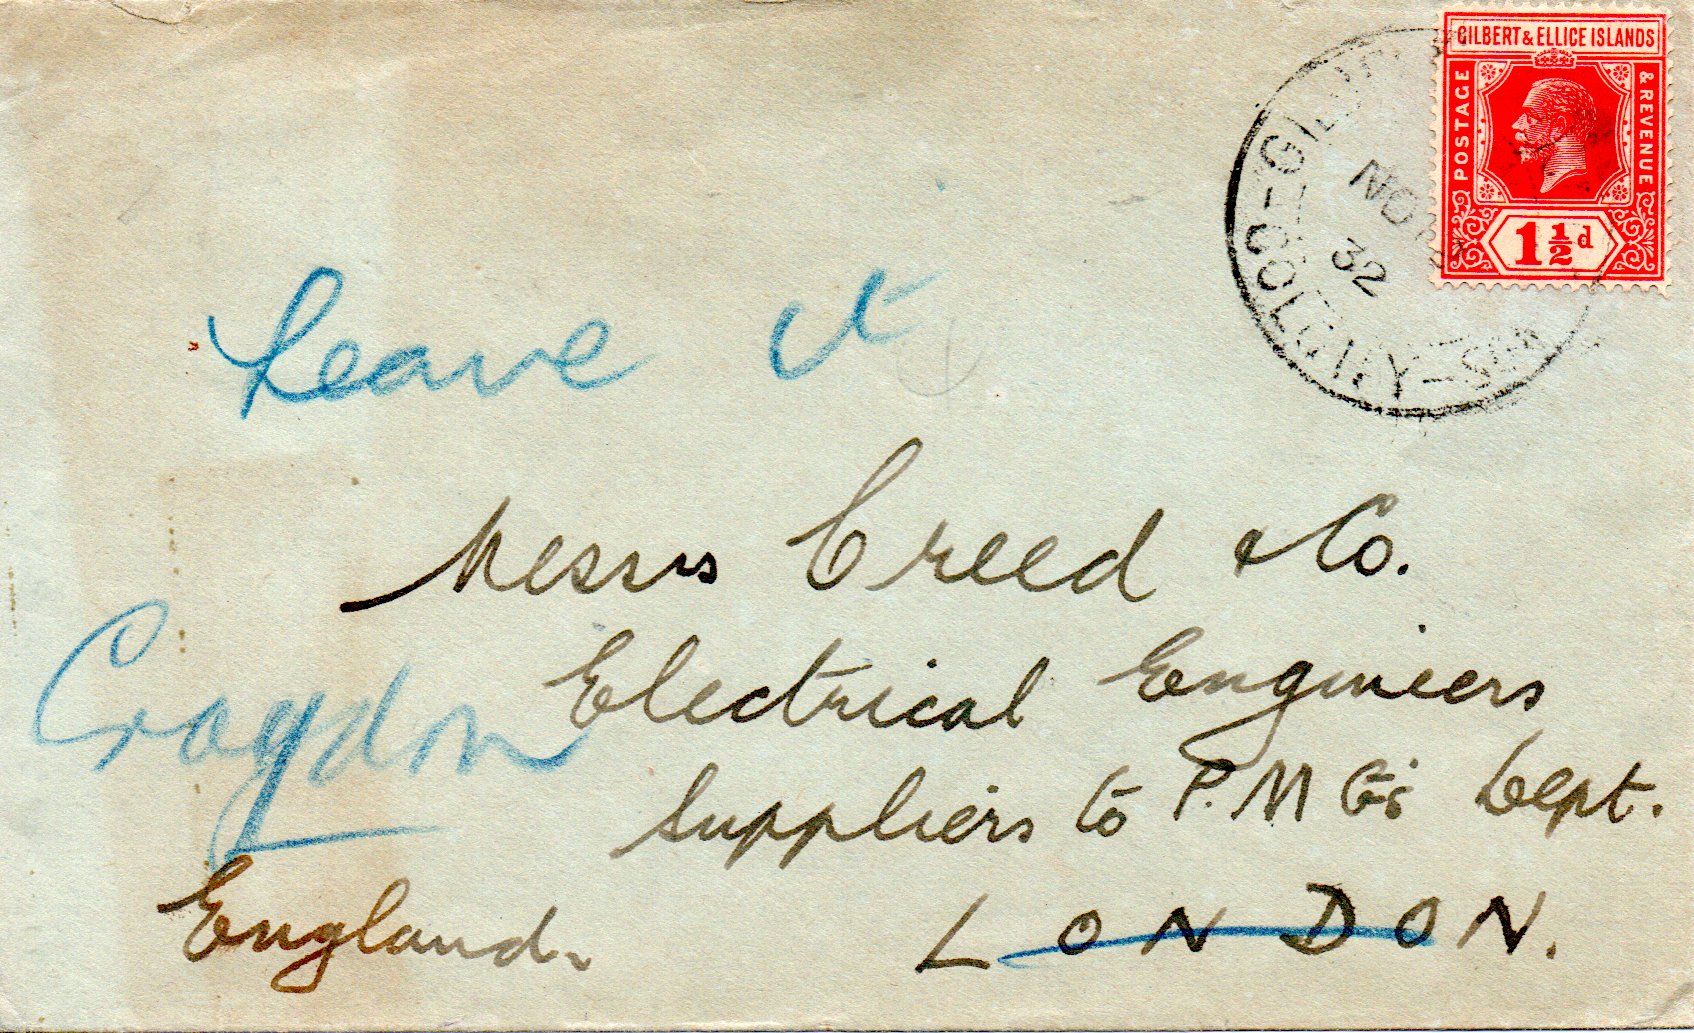 GILBERT & ELLICE ISLANDS
POSTAGE & REVENUE
1½d
NOV
32
COLONY
Leave it
Messrs Creed & Co.
Electrical Engineers
Suppliers to P.M G's Dept.
Croydon
LONDON.
England.